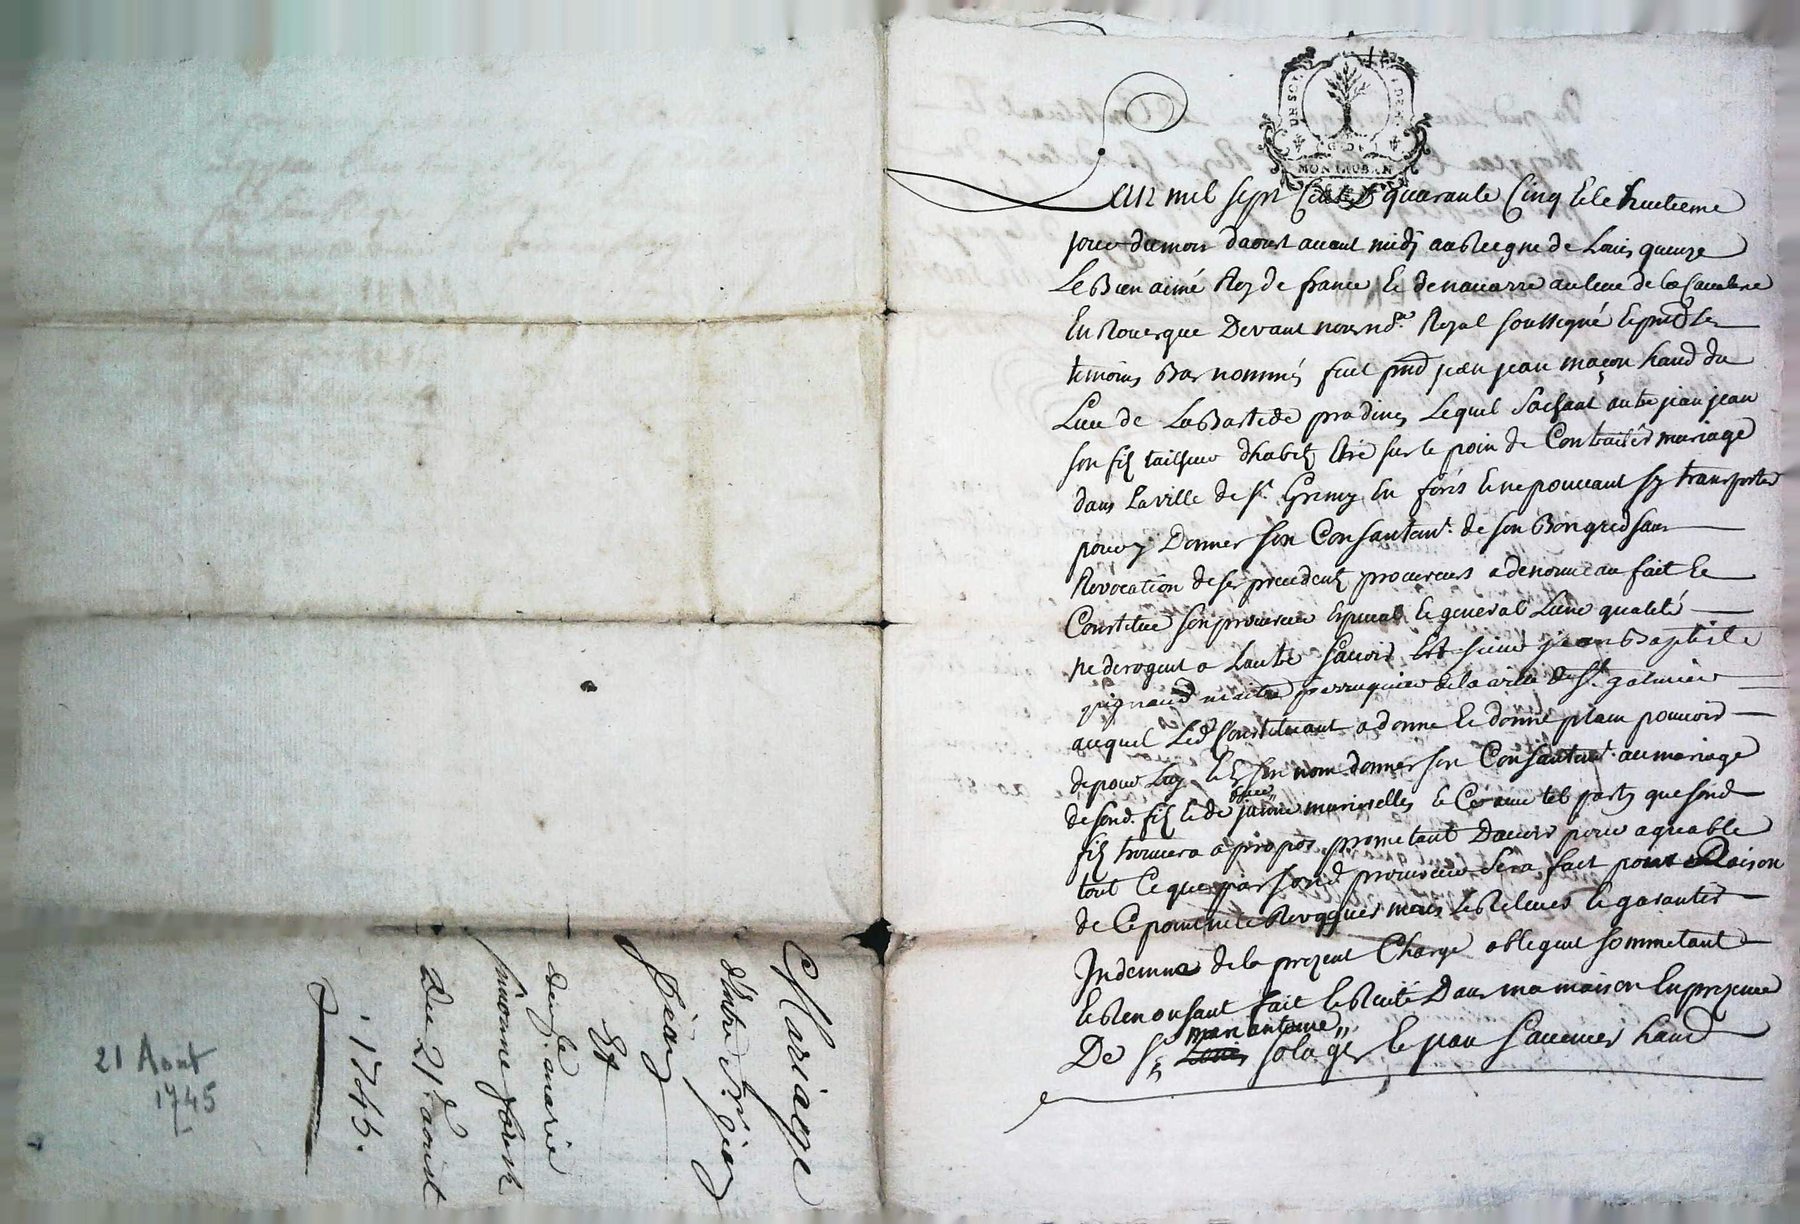 UN SOL
DEN
MONTAUBAN
L'an mil sept Cent quarante Cinq et le huitieme
jour du mois daoust avant midj au Regne de Louis quinze
Le Bien aimé Roy de france et de navarre au lieu de la Cavalerie
En Rouergue Devant nous no.re Royal soussigné et pntz les
temoins Bas nommés fuit pnt jean jean maçon hand du
Lieu de LaBastide pradines Lequel Sachant autre jean jean
son filz tailheur dhabitz Etre sur le poin de Contraiter mariage
dans La ville de St. en forés et ne pouvant sy transporter
pour y Donner son Consantemt. de son Bon gred sans
Revocation de ses precedentz procureurs a de nouveau fait et
Constitué son procureur especial et general Lune qualité
ne derogent a Lautre savoir est sieur jean Baptiste
maitre perruquier de la ville de St. galmier
auquel Led Constituant a donné et donne plain pouvoir
de pour Luy et En son nom donner son Consantemt. au mariage
de sond. filz et de et Ce avec tel party que sond
filz trouvera apropos prometant Davoir pour agreable
tout Ce que par sond procureur Sera fait pour Raison
de Ce point ne le Revoquer mais Le Relever et garantir
Indemne de la prezent Charge obligent sommetant
et Renonsant fait et Recité Dans ma maison En presence
De Sr antoine solages et jean hand
Mariage
d'entre Sr. jean
Jean
Et
marie
simonne
Du 21 aoust
1745.
21 Aout
1745